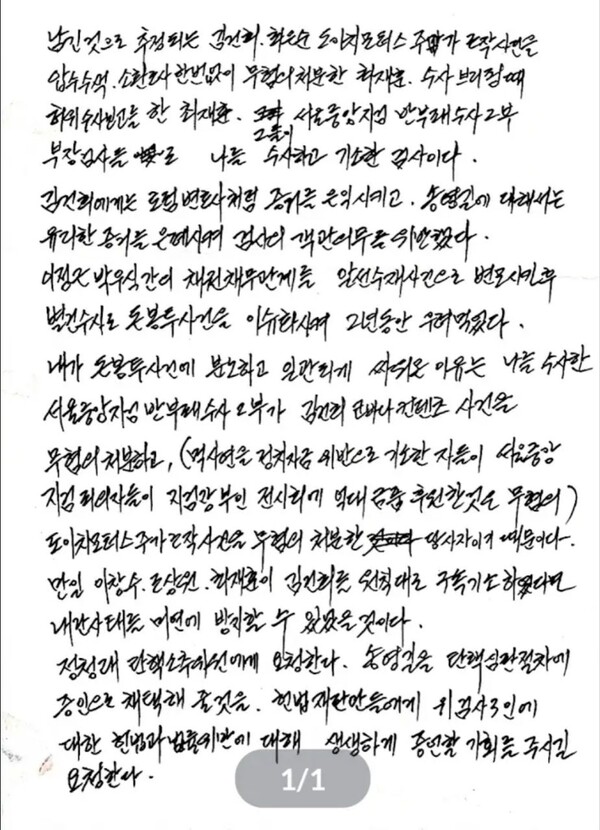 남긴것으로 추정되는 김건희. 최은순 도이치모터스 주가 조작사건을
압수수색. 소환조사 한번없이 무혐의처분한 최재훈. 수사 브리핑때
허위수사보고를 한 최재훈. 그들이 서울중앙지검 반부패수사2부
부장검사를 나를 수사하고 기소한 검사이다.
김건희에게는 로펌변호사처럼 증거를 은익시키고. 송영길에 대해서는
유리한 증거를 은폐시켜 검사의 객관의무를 위반했다.
이정근 박우식간의 채권채무관계를 알선수재사건으로 변모시킨후
별건수사로 돈봉투사건을 이슈화시켜 2년동안 우려먹었다.
내가 돈봉투사건에 분노하고 일관되게 싸워온 이유는 나를 수사한
서울중앙지검 반부패수사2부가 김건희 코바나컨텐츠 사건을
무혐의처분하고, (먹사연을 정치자금위반으로 기소한 자들이 서울중앙
지검 피의자들이 지검장부인 전시회에 억대금품 후원한것은 무혐의)
도이치모터스 주가조작사건을 무혐의 처분한 당사자이기 때문이다.
만일 이창수. 조상원. 최재훈이 김건희를 원칙대로 구속기소하였다면
내란사태를 미연에 방지할 수 있었을것이다.
정청래 탄핵소추위원에게 요청한다. 송영길을 탄핵심판절차에
증인으로 채택해 줄것을. 헌법재판관들에게 위검사3인에
대한 헌법과 법률위반에 대해 생생하게 증언할 기회를 주시길
요청한다.
1/1